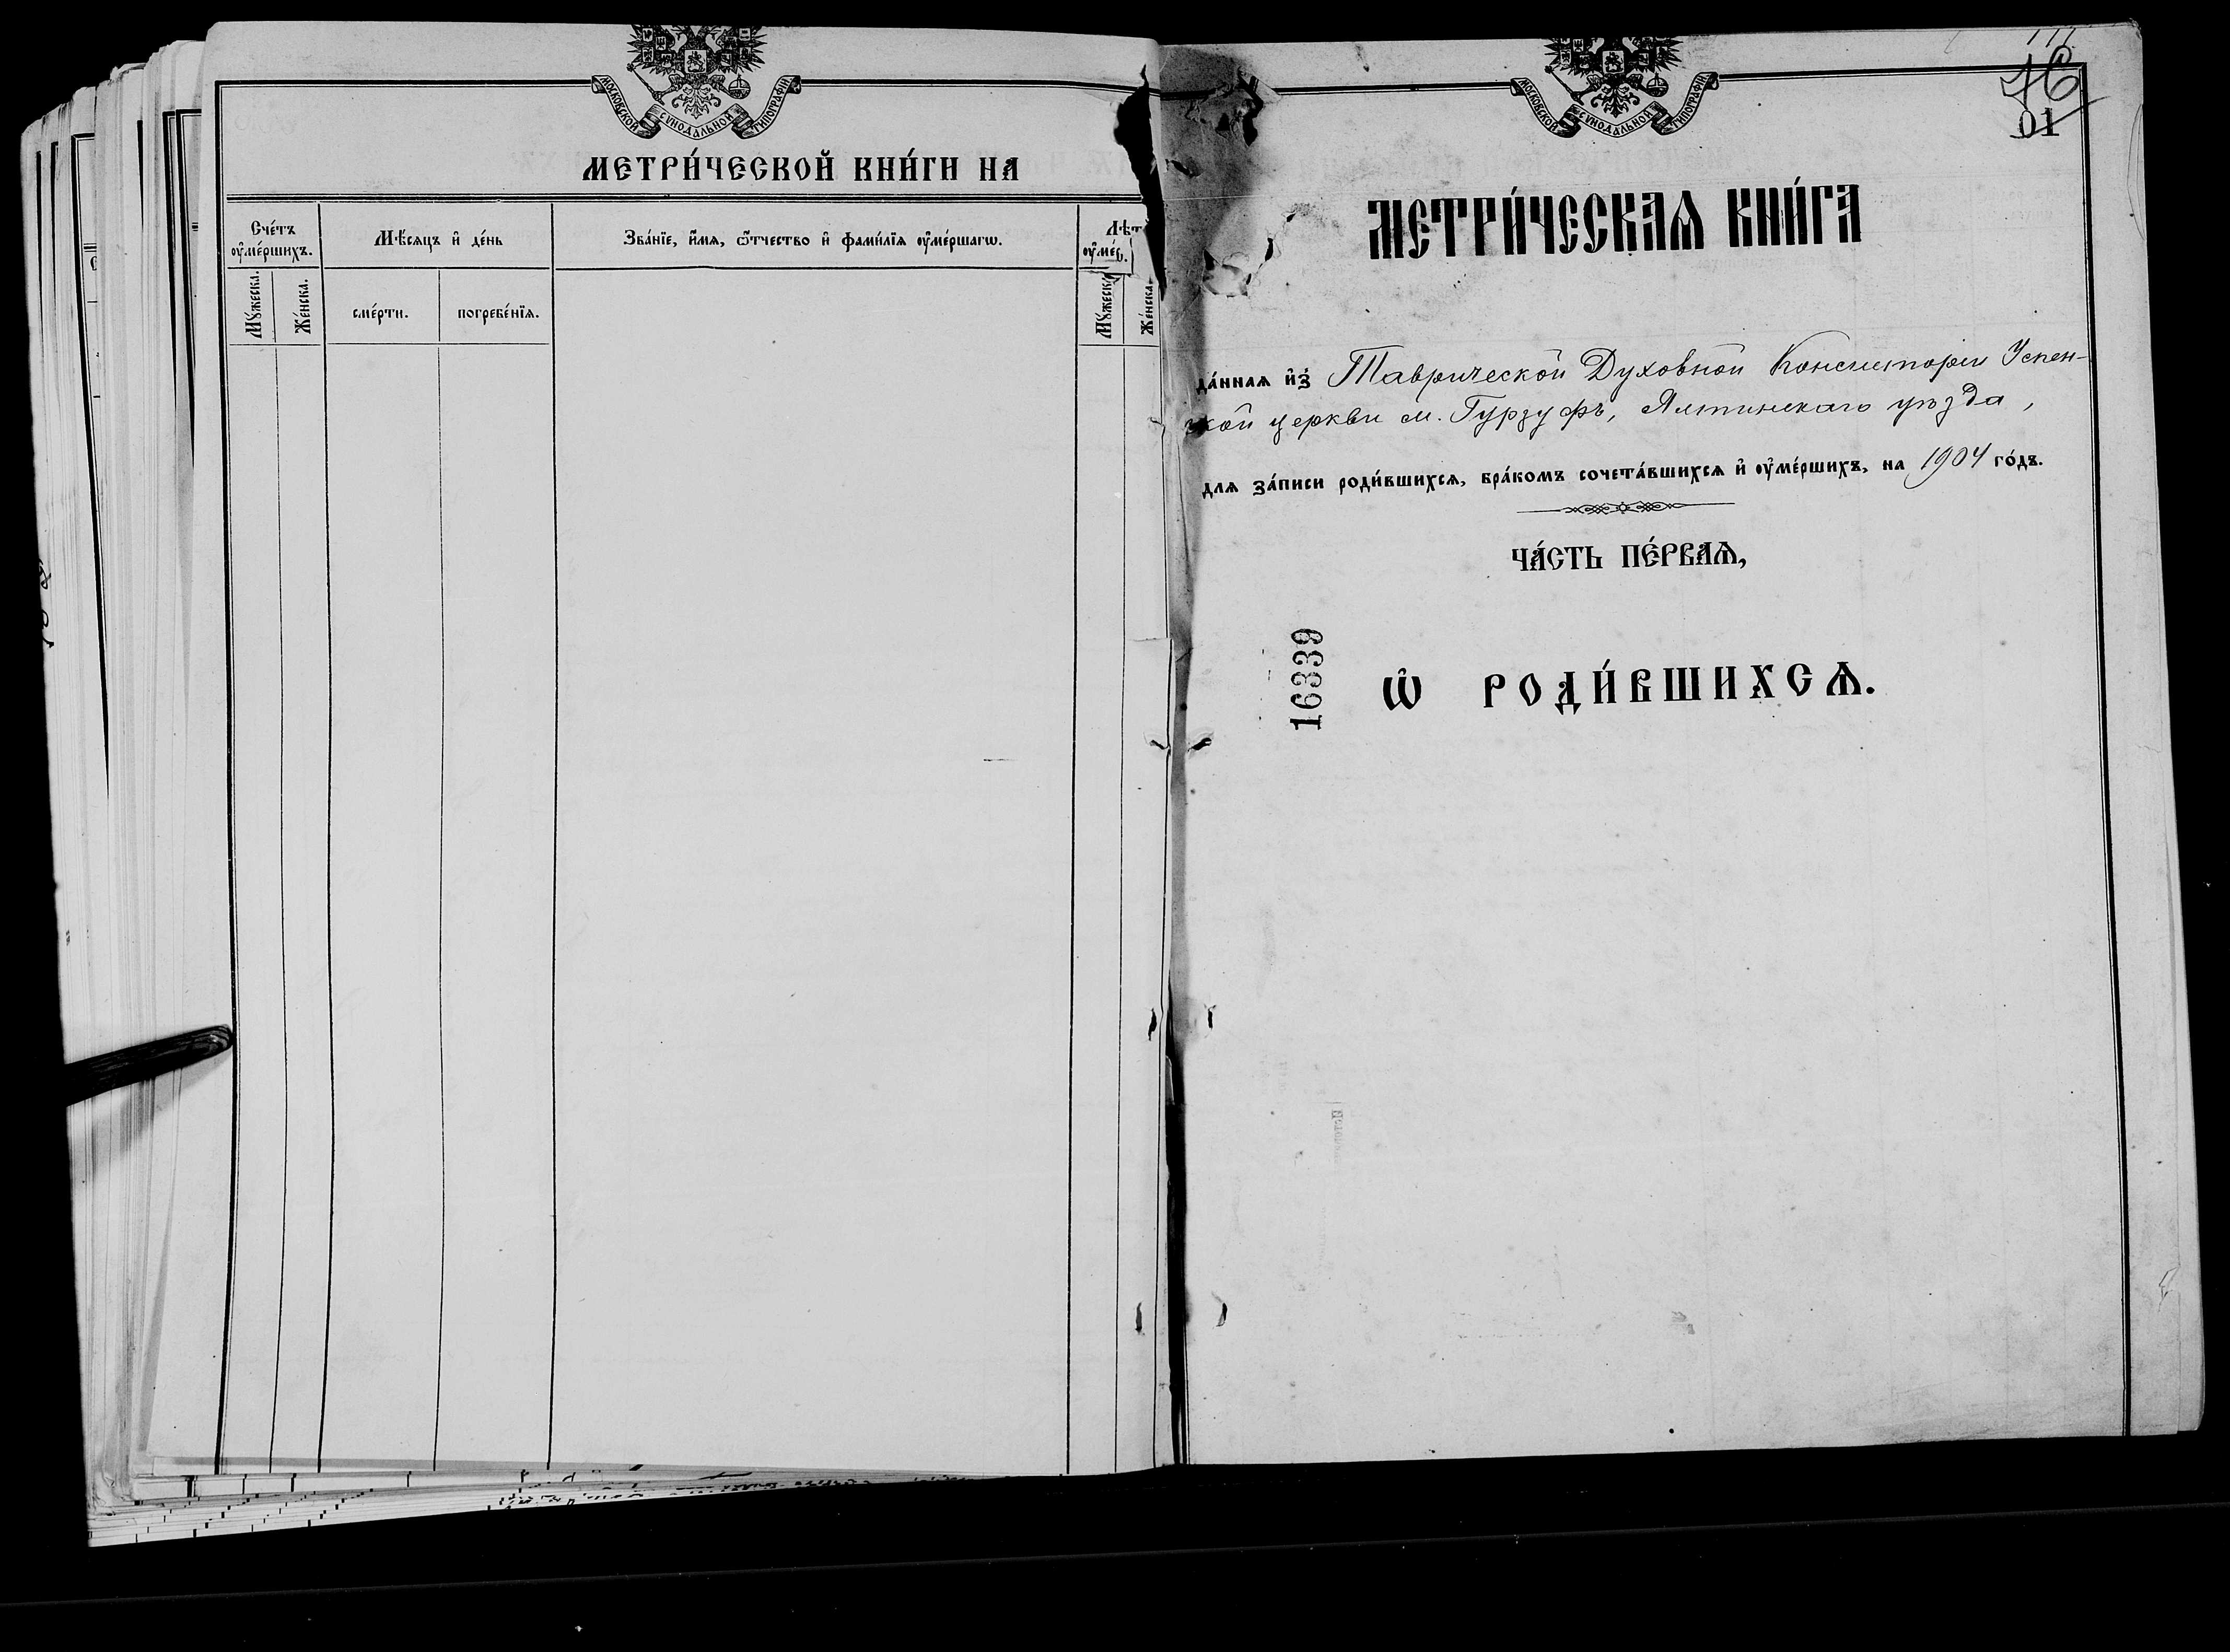 МОСКОВСКОЙ СѴНОДАЛЬНОЙ ТИПОГРАФІИ
МЕТРИ́ЧЕСКОЙ КНИ́ГИ НА
Сче́тъ ᲂу҆ме́ршихъ.
Мѣ́сяцъ и҆ де́нь
Зва́нїе, и҆́мѧ, ѻ҆́тчество и҆ фами́лїѧ ᲂу҆ме́ршагѡ.
Лѣт
ᲂу҆ме́р.
Мꙋ́жеска.
Же́нска.
сме́рти.
погребе́нїѧ.
Мꙋ́жеск
Же́нска
МОСКОВСКОЙ СѴНОДАЛЬНОЙ ТИПОГРАФІИ
01
МЕТРИ́ЧЕСКАѦ КНИ́ГА
да́ннаѧ и҆з̾ Таврической Духовной Консисторіи Успен-
ской церкви м. Гурзуфъ, Ялтинскаго уѣзда,
длѧ за́писи роди́вшихсѧ, бра́комъ сочета́вшихсѧ и҆ ᲂу҆ме́ршихъ, на 1904 го́дъ.
ЧА́СТЬ ПЕ́РВАѦ,
16339
Ѡ҆ РОДИ́ВШИХСѦ.